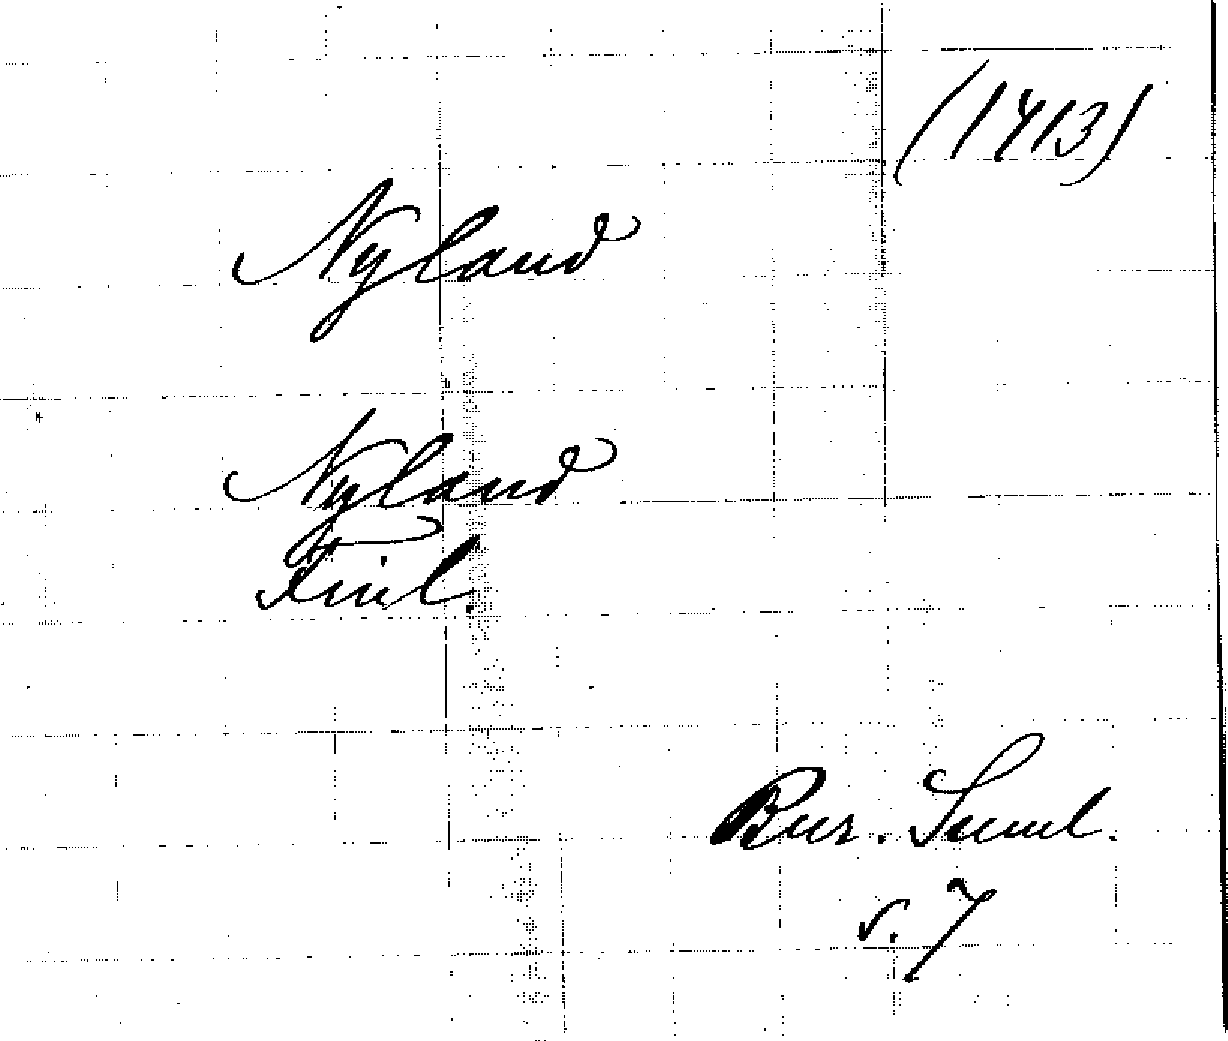 (1413)
Nyland
Nyland
Finl.
Bur. Saml.
s. 7